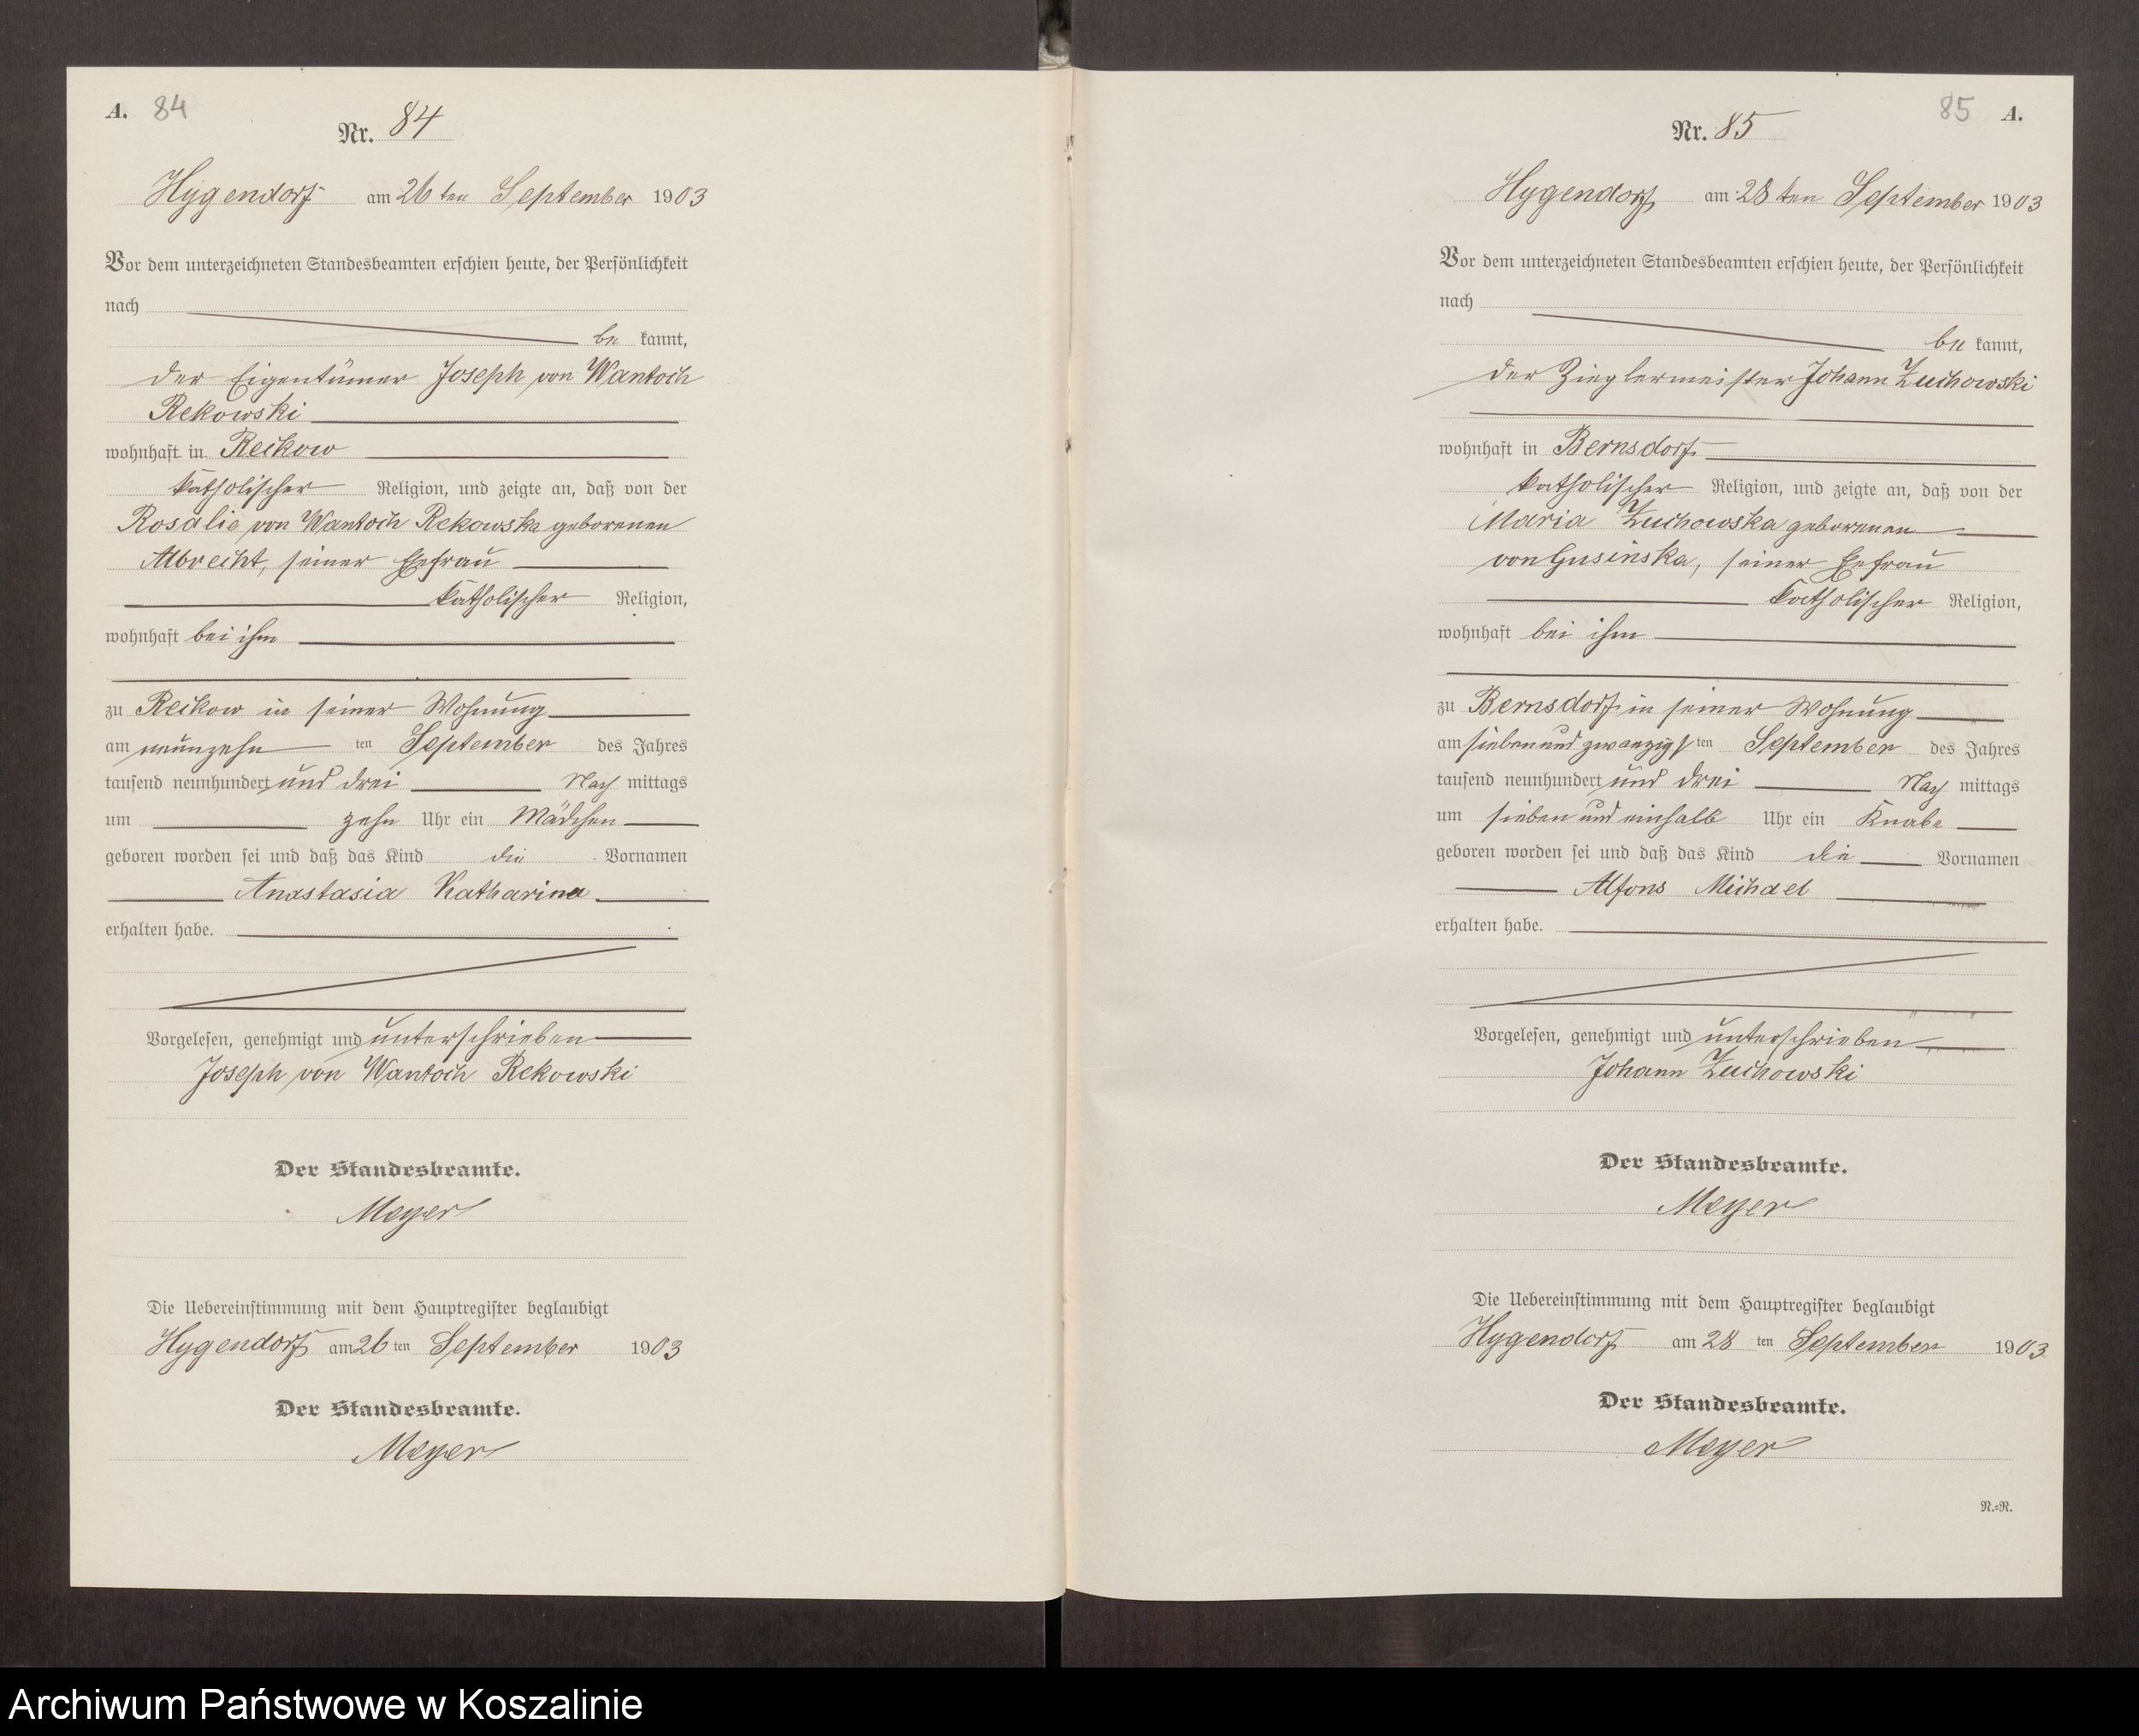 A. 84
Nr. 84
Hygendorf am 26 ten September 1903
Vor dem unterzeichneten Standesbeamten erschien heute, der Persönlichkeit
nach
be kannt,
der Eigentümer Joseph von Wantoch
Rekowski
wohnhaft in Reckow
katholischer Religion, und zeigte an, daß von der
Rosalie von Wantoch Rekowska geborenen
Albrecht, seiner Ehefrau
katholischer Religion,
wohnhaft bei ihm
zu Reckow in seiner Wohnung
am neunzehn ten September des Jahres
tausend neunhundert und drei Nach mittags
um zehn Uhr ein Mädchen
geboren worden sei und daß das Kind die Vornamen
Anastasia Katharina
erhalten habe.
Vorgelesen, genehmigt und unterschrieben
Joseph von Wantoch Rekowski
Der Standesbeamte.
Meyer
Die Uebereinstimmung mit dem Hauptregister beglaubigt
Hygendorf am 26 ten September 1903
Der Standesbeamte.
Meyer
85 A.
Nr. 85
Hygendorf am 28 ten September 1903
Vor dem unterzeichneten Standesbeamten erschien heute, der Persönlichkeit
nach
be kannt,
der Zieglermeister Johann Zuchowski
wohnhaft in Bernsdorf
katholischer Religion, und zeigte an, daß von der
Maria Zuchowska geborenen
von Gusinska, seiner Ehefrau
katholischer Religion,
wohnhaft bei ihm
zu Bernsdorf in seiner Wohnung
am siebenundzwanzigs ten September des Jahres
tausend neunhundert und drei Nach mittags
um sieben und einhalb Uhr ein Knabe
geboren worden sei und daß das Kind die Vornamen
Alfons Michael
erhalten habe.
Vorgelesen, genehmigt und unterschrieben
Johann Zuchowski
Der Standesbeamte.
Meyer
Die Uebereinstimmung mit dem Hauptregister beglaubigt
Hygendorf am 28 ten September 1903
Der Standesbeamte.
Meyer
N.=R.
Archiwum Państwowe w Koszalinie